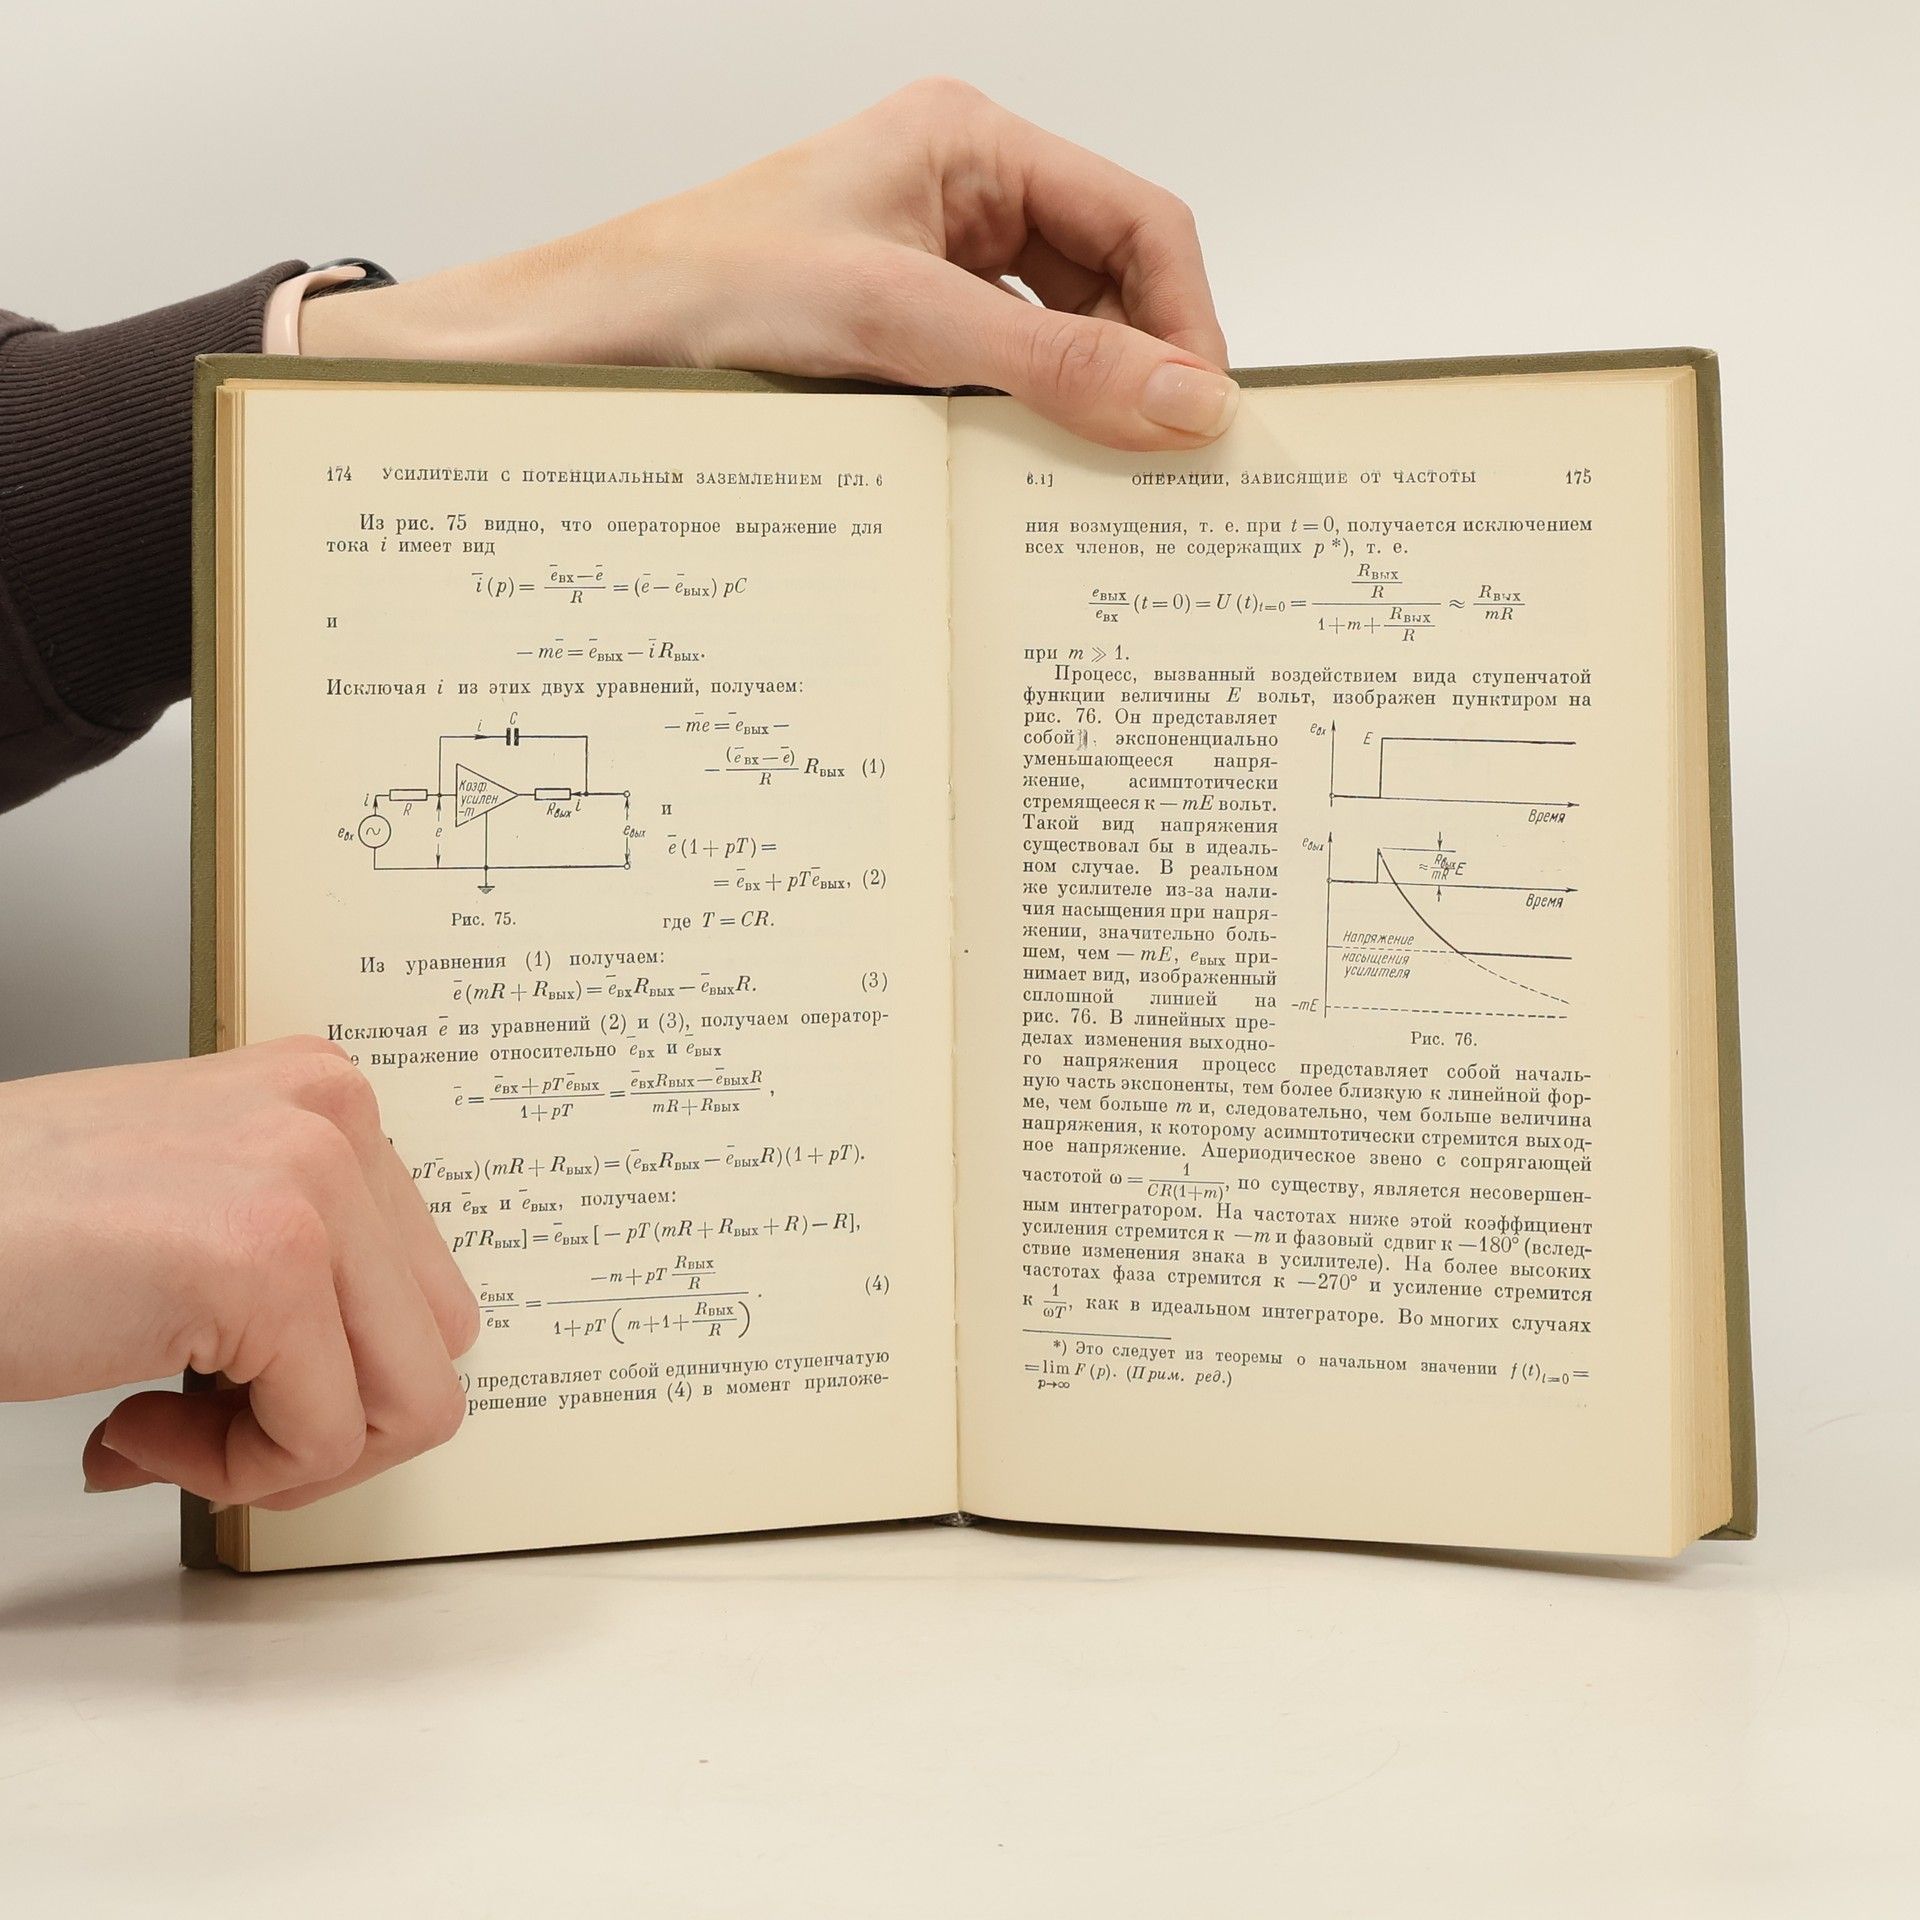 174 УСИЛИТЕЛИ С ПОТЕНЦИАЛЬНЫМ ЗАЗЕМЛЕНИЕМ [ГЛ. 6
Из рис. 75 видно, что операторное выражение для
тока i имеет вид
i̅(p) = (e̅вх — e̅)/R = (e̅ — e̅вых) pC
и
— me̅ = e̅вых — i̅Rвых.
Исключая i из этих двух уравнений, получаем:
— me̅ = e̅вых —
— (e̅вх — e̅)/R Rвых (1)
и
e̅(1 + pT) =
= e̅вх + pTe̅вых, (2)
где T = CR.
i
C
i
R
Коэф.
усилен
—m
Rвых
i
eвх
e
eвых
Рис. 75.
Из уравнения (1) получаем:
e̅(mR + Rвых) = e̅вхRвых — e̅выхR. (3)
Исключая e̅ из уравнений (2) и (3), получаем оператор-
е выражение относительно e̅вх и e̅вых
e̅ = (e̅вх + pTe̅вых)/(1 + pT) = (e̅вхRвых — e̅выхR)/(mR + Rвых),
pTe̅вых)(mR + Rвых) = (e̅вхRвых — e̅выхR)(1 + pT).
яя e̅вх и e̅вых, получаем:
pTRвых] = e̅вых[— pT(mR + Rвых + R) — R],
e̅вых/e̅вх = (—m + pT Rвых/R)/(1 + pT(m + 1 + Rвых/R)). (4)
) представляет собой единичную ступенчатую
решение уравнения (4) в момент приложе-
6.1] ОПЕРАЦИИ, ЗАВИСЯЩИЕ ОТ ЧАСТОТЫ 175
ния возмущения, т. е. при t = 0, получается исключением
всех членов, не содержащих p *), т. е.
eвых/eвх (t = 0) = U(t)t=0 = (Rвых/R)/(1 + m + Rвых/R) ≈ Rвых/mR
при m ≫ 1.
Процесс, вызванный воздействием вида ступенчатой
функции величины E вольт, изображен пунктиром на
рис. 76. Он представляет
собой экспоненциально
уменьшающееся напря-
жение, асимптотически
стремящееся к — mE вольт.
Такой вид напряжения
существовал бы в идеаль-
ном случае. В реальном
же усилителе из-за нали-
чия насыщения при напря-
жении, значительно боль-
шем, чем — mE, eвых при-
нимает вид, изображенный
сплошной линией на
рис. 76. В линейных пре-
делах изменения выходно-
eвх
E
Время
eвых
≈ Rвых/mR E
Время
Напряжение
насыщения
усилителя
—mE
Рис. 76.
го напряжения процесс представляет собой началь-
ную часть экспоненты, тем более близкую к линейной фор-
ме, чем больше m и, следовательно, чем больше величина
напряжения, к которому асимптотически стремится выход-
ное напряжение. Апериодическое звено с сопрягающей
частотой ω = 1/CR(1+m), по существу, является несовершен-
ным интегратором. На частотах ниже этой коэффициент
усиления стремится к —m и фазовый сдвиг к —180° (вслед-
ствие изменения знака в усилителе). На более высоких
частотах фаза стремится к —270° и усиление стремится
к 1/ωT, как в идеальном интеграторе. Во многих случаях
*) Это следует из теоремы о начальном значении f(t)t=0 =
= lim F(p). (Прим. ред.)
p→∞